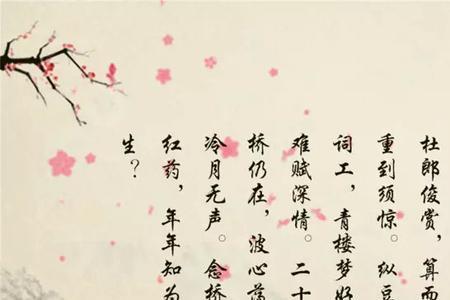 杜郎俊赏，算而
重到须惊。纵豆
词工，青楼梦好
难赋深情。二十
桥仍在，波心荡
冷月无声。念桥
红药，年年知为
生？